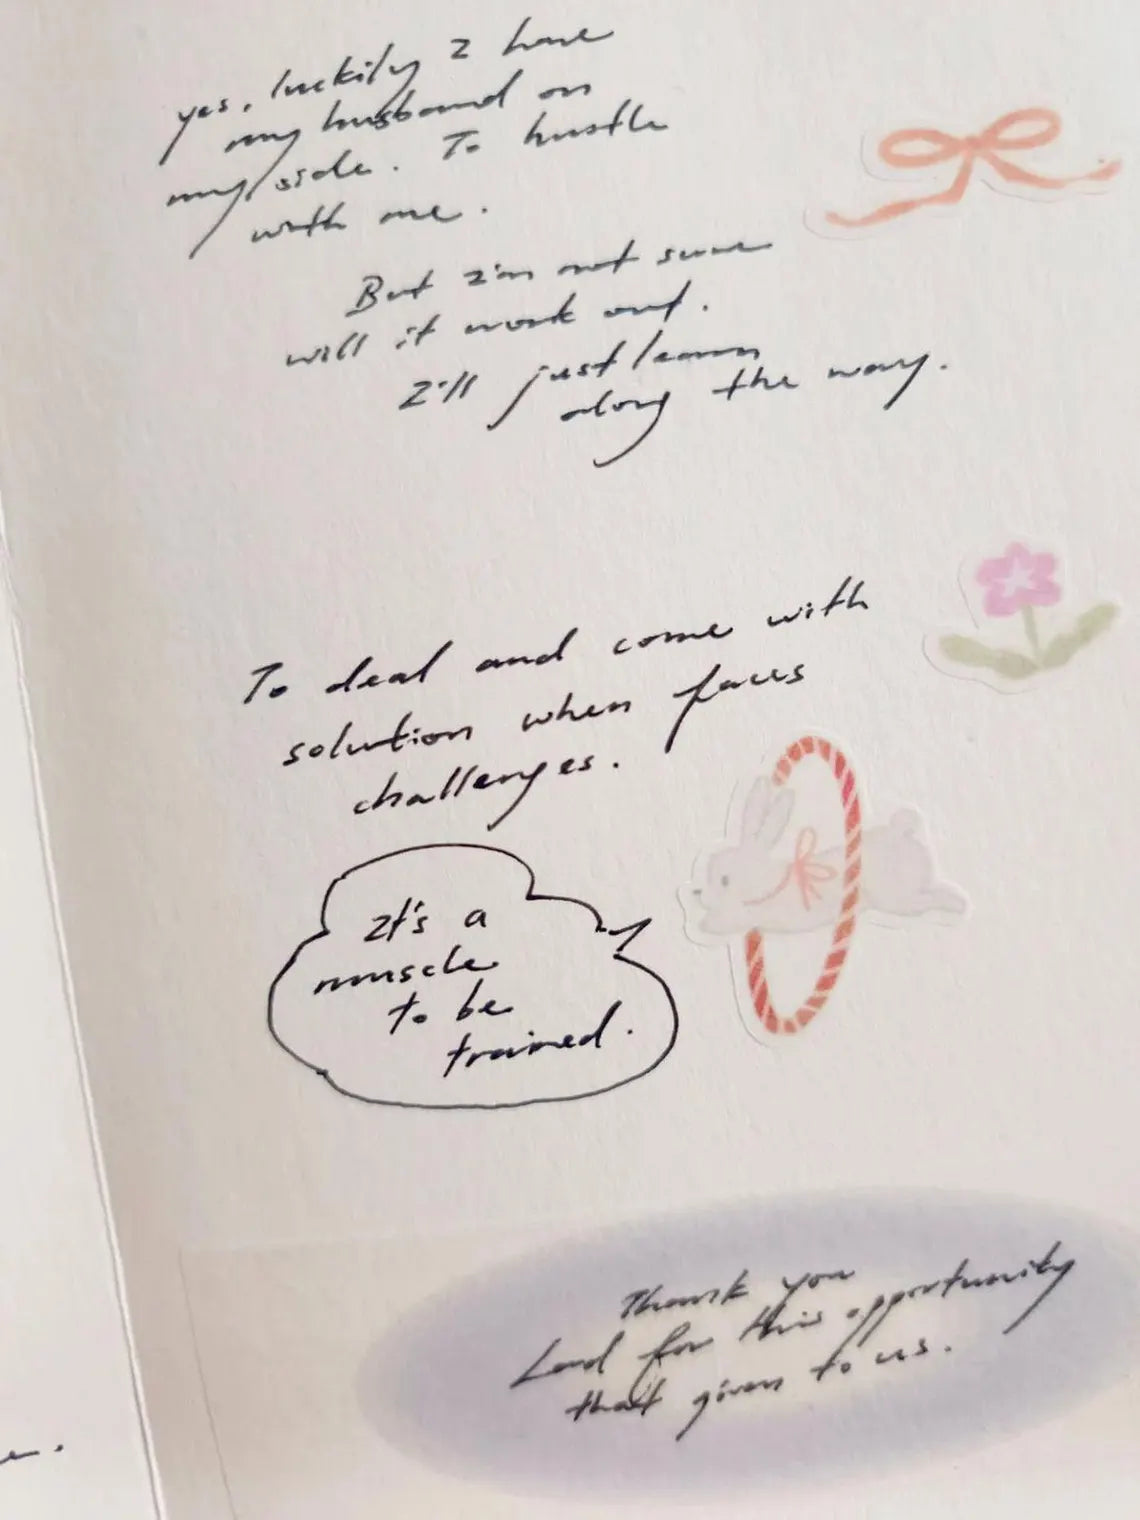 yes, luckily I have
my husband on
my side. To hustle
with me.
But I'm not sure
will it work out.
I'll just learn
along the way.
To deal and come with
solution when faces
challenges.
It's a
muscle
to be
trained.
Thank you
Lord for this opportunity
that given to us.